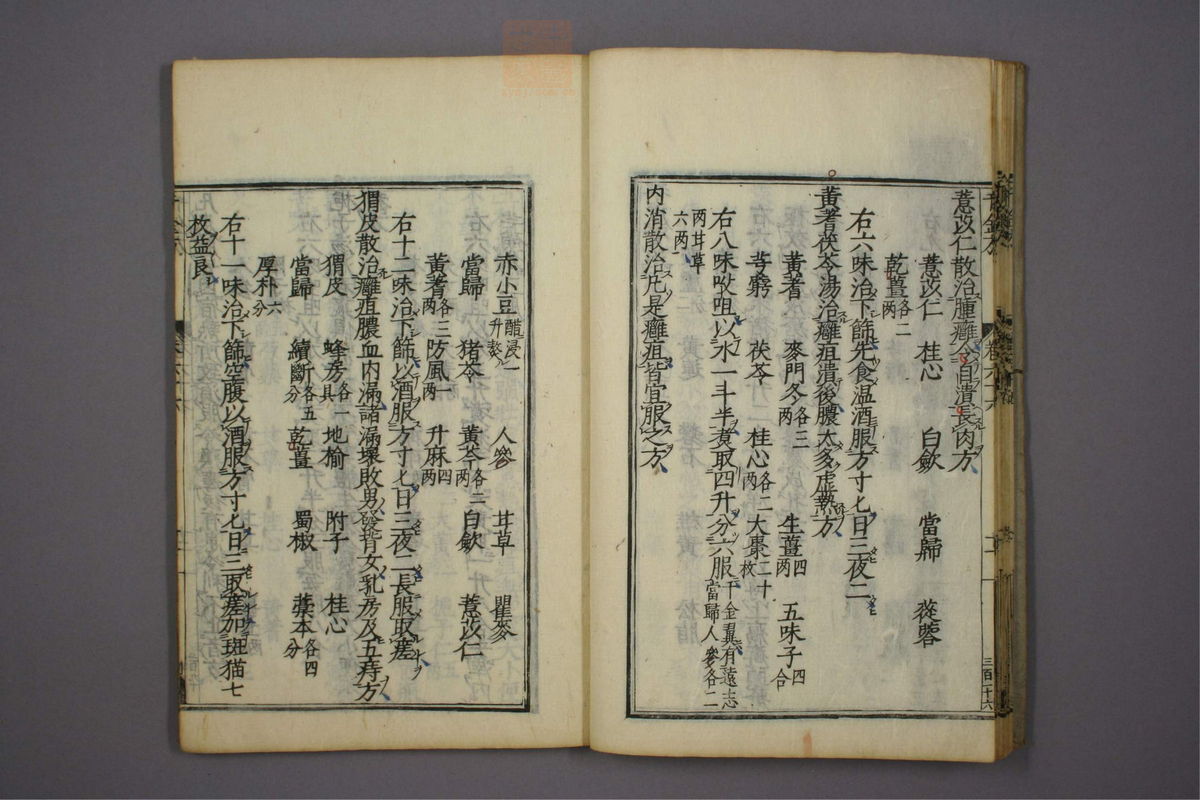 薏苡仁散治腫癰令自潰長肉方
薏苡仁 桂心 白歛 當歸 蓯蓉
乾薑各二兩
右六味治下篩先食温酒服方寸匕日三夜二
黃耆茯苓湯治癰疽潰後膿太多虚熱方
黃耆 麥門冬各三兩 生薑四兩 五味子四合
芎藭 茯苓 桂心各二兩 大棗二十枚
右八味㕮咀以水一斗半煮取四升分六服千金翼有遠志當歸人參各二
兩甘草六兩
内消散治凡是癰疽皆宜服之方
三百二十六
赤小豆醋浸一升熬 人參 甘草 瞿麥
當歸 猪苓 黃芩各二兩 白歛 薏苡仁
黃耆各三兩 防風一兩 升麻四兩
右十二味治下篩以酒服方寸匕日三夜一長服取瘥
猬皮散治癰疽膿血内漏諸漏壞敗男發背女乳房及五痔方
猬皮 蜂房各一具 地榆 附子 桂心
當歸 續斷各五分 乾薑 蜀椒 藁本各四分
厚朴六分
右十一味治下篩空腹以酒服方寸匕日三取瘥加斑猫七
枚益良